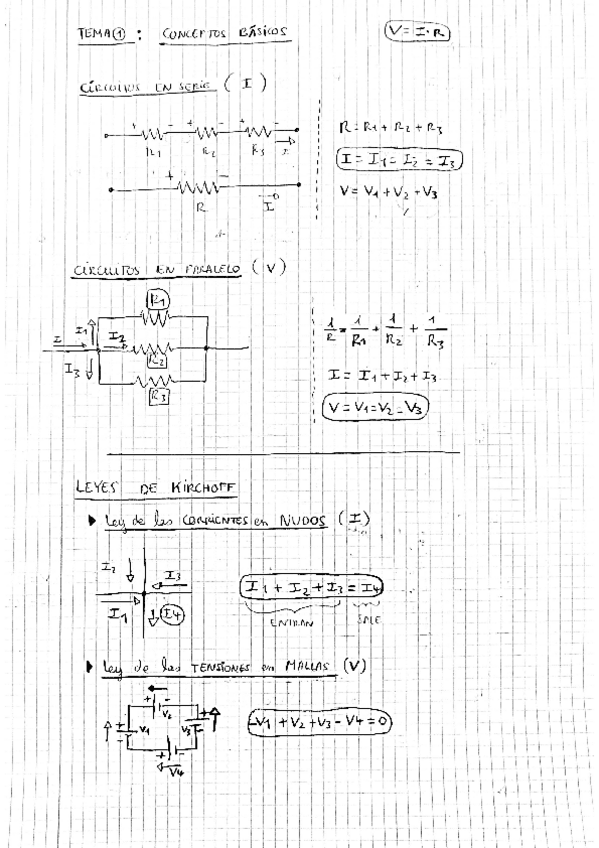 TEMA ① : CONCEPTOS BÁSICOS
V = I · R
CIRCUITOS EN SERIE ( I )
+ - + - + -
R1 R2 R3 I
+ -
R I
R = R1 + R2 + R3
I = I1 = I2 = I3
V = V1 + V2 + V3
CIRCUITOS EN PARALELO ( V )
R1
I I1 I2
R2
I3
R3
1/R = 1/R1 + 1/R2 + 1/R3
I = I1 + I2 + I3
V = V1 = V2 = V3
LEYES DE KIRCHOFF
▸ Ley de las CORRIENTES en NUDOS ( I )
I2 I3
I1 I4
I1 + I2 + I3 = I4
ENTRAN SALE
▸ Ley de las TENSIONES en MALLAS (V)
+ -
V2
+ V1 - V3 + -
+ -
V4
-V1 + V2 + V3 - V4 = 0